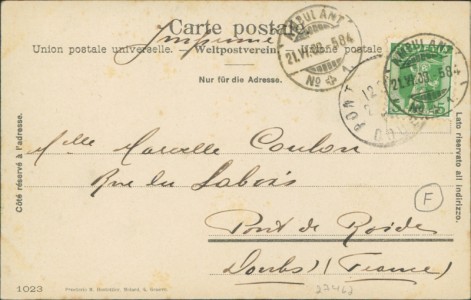 Carte postale.
Imprimé
Union postale universelle. – Weltpostverein. – Unione postale
Nur für die Adresse.
AMBULANT
21.VI.09. 584
No 1
AMBULANT
21.VI.09. 584
No
PONT
DOUBS
5
Côté réservé à l'adresse.
Lato riservato all indirizzo.
Mlle Marcelle Coulon
Rue du
Pont de Roide
Doubs) (France)
F
1023